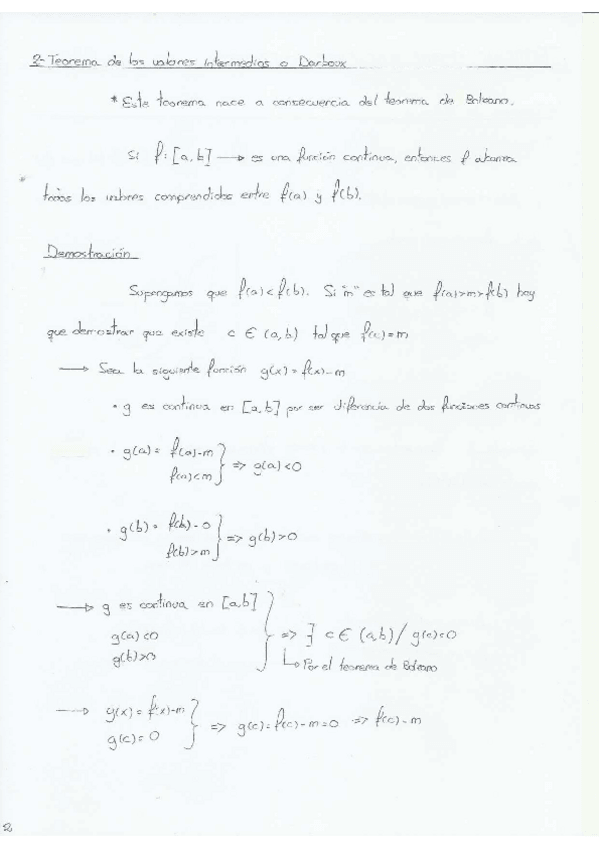 2- Teorema de los valores intermedios o Darboux
* Este teorema nace a consecuencia del teorema de Bolzano.
Si f: [a,b] → es una función continua, entonces f alcanza
todos los valores comprendidos entre f(a) y f(b).
Demostración
Supongamos que f(a)<f(b). Si "m" es tal que f(a)>m>f(b) hay
que demostrar que existe c ∈ (a,b) tal que f(c)=m
→ Sea la siguiente función g(x)=f(x)-m
• g es continua en [a,b] por ser diferencia de dos funciones continuas
• g(a)= f(a)-m
f(a)<m } => g(a)<0
• g(b)= f(b)-0
f(b)>m } => g(b)>0
→ g es continua en [a,b]
g(a)<0 } => ∃ c ∈ (a,b) / g(c)=0
g(b)>0
↳ Por el teorema de Bolzano
→ g(x)=f(x)-m
g(c)=0 } => g(c)=f(c)-m=0 => f(c)-m
2